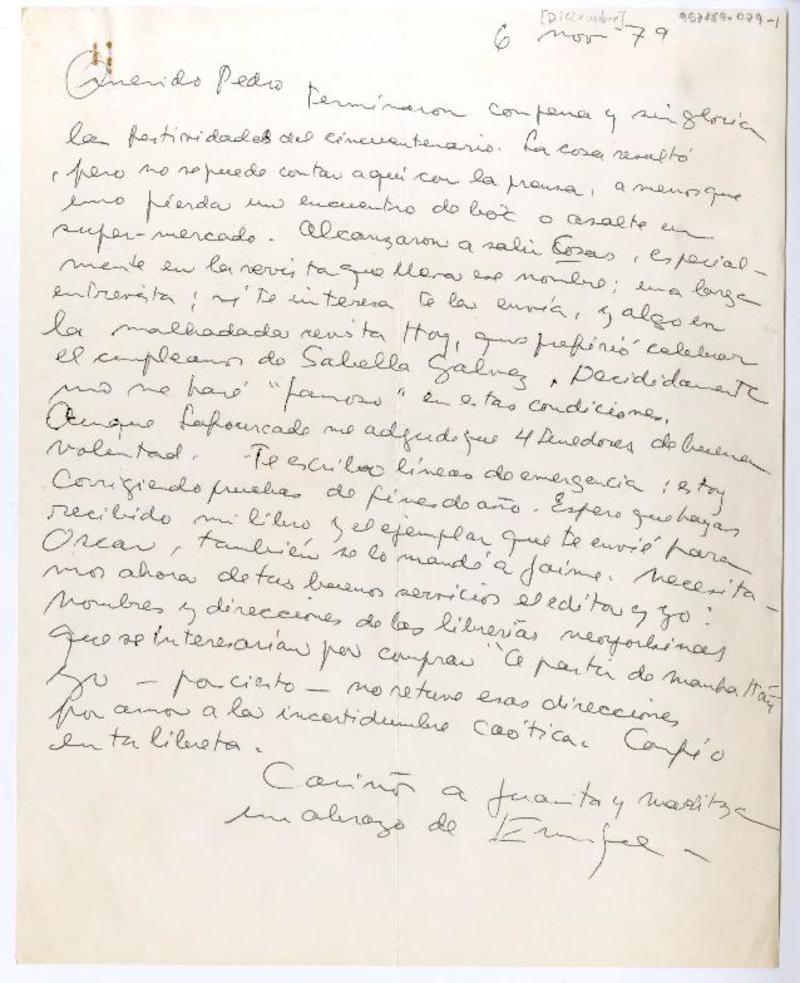 [Diciembre] 957189-079-1
6 nov 79
Querido Pedro
Terminaron con pena y sin gloria
las festividades del cincuentenario. La cosa resultó
, pero no se puede contar aquí con la prensa, a menos que
uno pierda un encuentro de box o asalte un
super-mercado. Alcanzaron a salir Cosas, especial-
mente en la revista que lleva ese nombre: una larga
entrevista; si te interesa te la envío, y algo en
la malhadada revista Hoy, que prefirió celebrar
el cumpleaños de Sabella Galvez. Decididamente
uno no hará "famoso" en estas condiciones.
Aunque Lafourcade me adjudique 4 tenedores de buena
voluntad. Te escribo líneas de emergencia: estoy
corrigiendo pruebas de fines de año. Espero que hayas
recibido mi libro y el ejemplar que te envié para
Oscar, también se lo mandé a Jaime. Necesita-
mos ahora de tus buenos servicios el editor y yo:
Nombres y direcciones de las librerías neoyorkinas
que se interesarían por comprar "A partir de Manhattan
yo - por cierto - no retuve esas direcciones
por amor a la incertidumbre caótica. Confío
en tu libreta.
Cariños a Juanita y Maritza
un abrazo de Enrique -